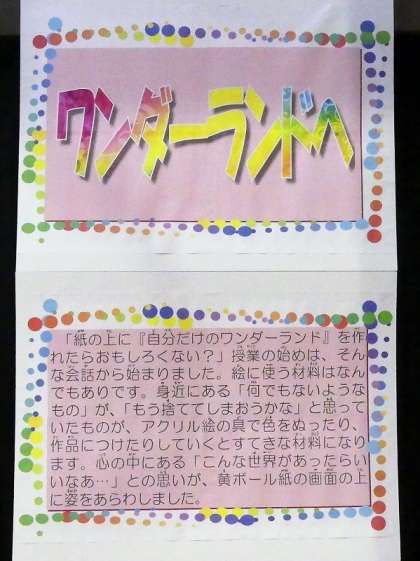 ワンダーランドへ
「紙の上に『自分だけのワンダーランド』を作
れたらおもしろくない？」授業の始めは、そん
な会話から始まりました。絵に使う材料はなん
でもありです。身近にある「何でもないような
もの」が、「もう捨ててしまおうかな」と思って
いたものが、アクリル絵の具で色をぬったり、
作品につけたりしていくとすてきな材料になり
ます。心の中にある「こんな世界があったらい
いなあ…」との思いが、黄ボール紙の画面の上
に姿をあらわしました。